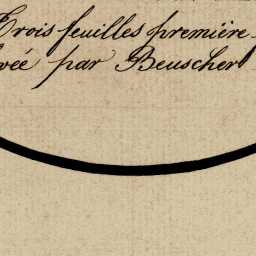 Trois feuilles première
vée par Beuscher